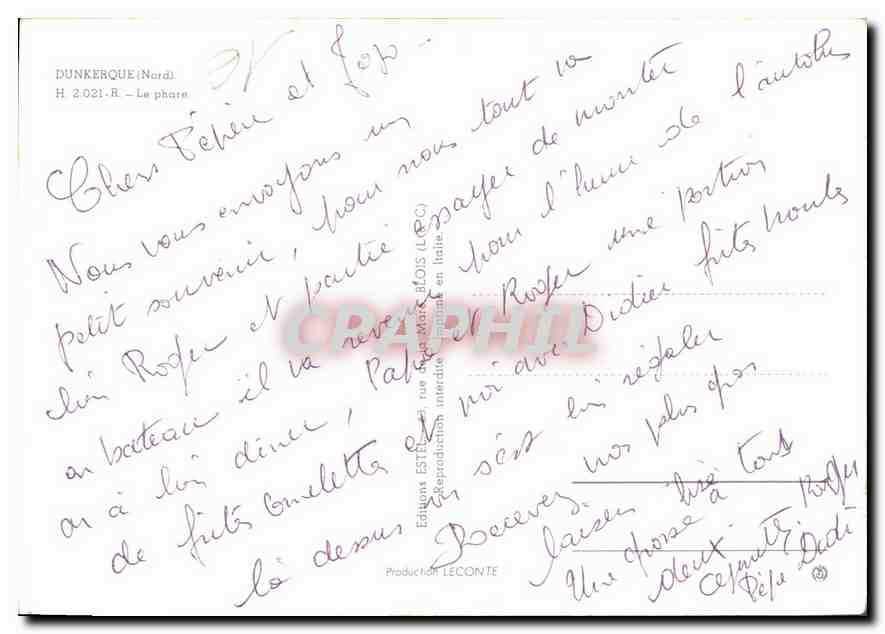 DUNKERQUE (Nord).
H. 2.021-R. — Le phare.
Chers Pépère et Jojo.
Nous vous envoyons un
petit souvenir, pour nous tout va
bien Roger est partie essayer de monter
en bateau il va revenir pour l'heure de l'autobus
on a bien diner, Papa et Roger une portion
de frites omelettes et moi avec Didier frites moules
là dessus on s'est bien régaler
Recevez nos plus gros
baisers à tous
deux.
Une grosse bise
Roger
Pépé Didi
Editions ESTEL rue de la Mare BLOIS (L.&C.)
Reproduction interdite Imprimé en Italie
Production LECONTE
CPAPHIL